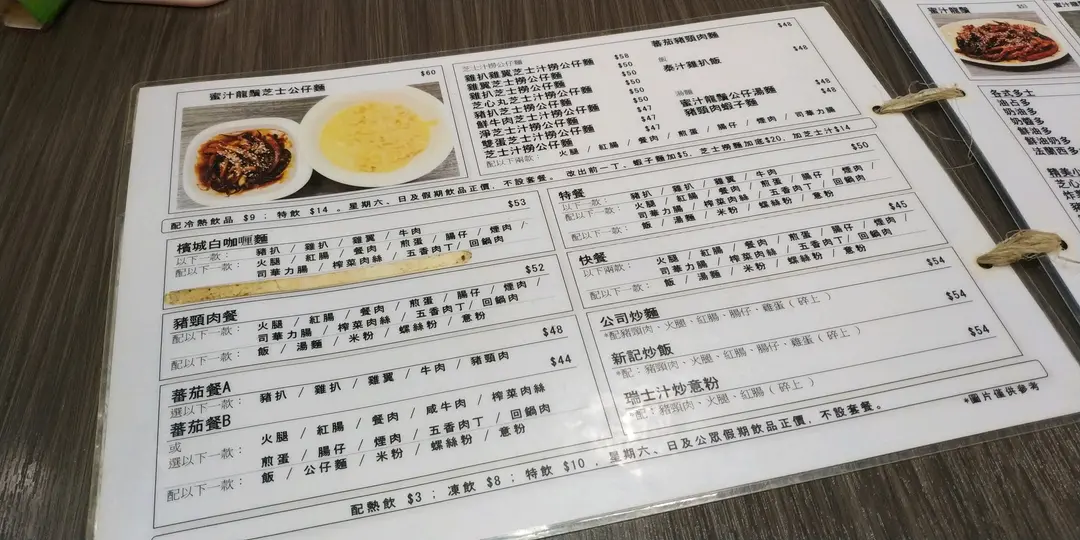 蜜汁龍鬚芝士公仔麵
$60
配冷熱飲品 $9 ; 特飲 $14 。星期六、日及假期飲品正價, 不設套餐。
芝士汁撈公仔麵
雞扒雞翼芝士汁撈公仔麵 $58
雞翼芝士撈公仔麵 $50
雞扒芝士汁撈公仔麵 $50
芝心丸芝士汁撈公仔麵 $50
豬扒芝士撈公仔麵 $50
鮮牛肉芝士汁撈公仔麵 $50
淨芝士汁撈公仔麵 $47
雙蛋芝士汁撈公仔麵 $47
芝士汁撈公仔麵 $47
配以下兩款: 火腿 / 紅腸 / 餐肉 / 煎蛋 / 腸仔 / 煙肉 / 司華力腸
蕃茄豬頸肉麵 $48
飯
泰汁雞扒飯 $48
湯麵
蜜汁龍鬚公仔湯麵 $48
豬頸肉蝦子麵 $48
改出前一丁、蝦子麵加$5, 芝士撈麵加進$20, 加芝士汁$14
檳城白咖喱麵 $53
以下一款: 豬扒 / 雞扒 / 雞翼 / 牛肉
配以下一款: 火腿 / 紅腸 / 餐肉 / 煎蛋 / 腸仔 / 煙肉 /
司華力腸 / 榨菜肉絲 / 五香肉丁 / 回鍋肉
豬頸肉餐 $52
配以下一款: 火腿 / 紅腸 / 餐肉 / 煎蛋 / 腸仔 / 煙肉 /
司華力腸 / 榨菜肉絲 / 五香肉丁 / 回鍋肉
配以下一款: 飯 / 湯麵 / 米粉 / 螺絲粉 / 意粉
蕃茄餐A $48
選以下一款: 豬扒 / 雞扒 / 雞翼 / 牛肉 / 豬頸肉
蕃茄餐B $44
或
選以下一款: 火腿 / 紅腸 / 餐肉 / 咸牛肉 / 榨菜肉絲
煎蛋 / 腸仔 / 煙肉 / 五香肉丁 / 回鍋肉
配以下一款: 飯 / 公仔麵 / 米粉 / 螺絲粉 / 意粉
特餐 $50
以下一款: 豬扒 / 雞扒 / 雞翼 / 牛肉
配以下一款: 火腿 / 紅腸 / 餐肉 / 煎蛋 / 腸仔 / 煙肉 /
司華力腸 / 榨菜肉絲 / 五香肉丁 / 回鍋肉
飯 / 湯麵 / 米粉 / 螺絲粉 / 意粉
快餐 $45
以下兩款: 火腿 / 紅腸 / 餐肉 / 煎蛋 / 腸仔 / 煙肉 /
司華力腸 / 榨菜肉絲 / 五香肉丁 / 回鍋肉
配以下一款: 飯 / 湯麵 / 米粉 / 螺絲粉 / 意粉
公司炒麵 $54
*配豬頸肉、火腿、紅腸、腸仔、雞蛋 ( 碎上 )
新記炒飯 $54
*配: 豬頸肉、火腿、紅腸、腸仔、雞蛋 ( 碎上 )
瑞士汁炒意粉 $54
*配: 豬頸肉、火腿、紅腸 ( 碎上 )
配熱飲 $3 ; 凍飲 $8 ; 特飲 $10 。星期六、日及公眾假期飲品正價, 不設套餐。
*圖片僅供參考
蜜汁龍鬚
各式多士
油占多
奶油多
奶醬多
鮮油多
鮮奶多
法蘭西多
精美小
芝心